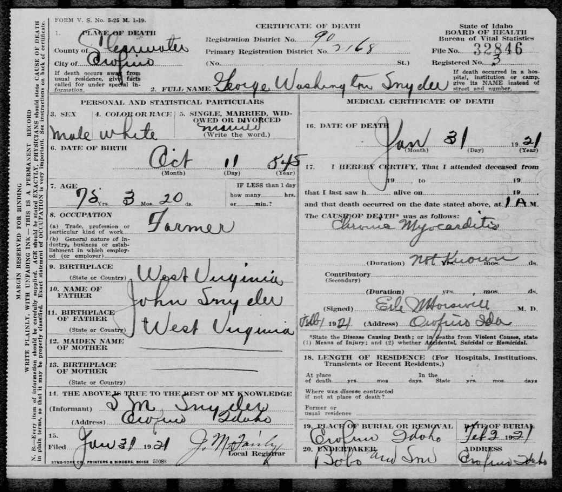 FORM V. S. No. 5-25 M. 1-19.
CERTIFICATE OF DEATH
State of Idaho
BOARD OF HEALTH
Bureau of Vital Statistics
1. PLACE OF DEATH
County of Clearwater
City of Orofino
Registration District No. 90
Primary Registration District No.
File No. 32846
(No. St.) Registered No. 3
If death occurs away from usual residence, give facts called for under special information.
If death occurred in a hospital, institution or camp, give its NAME instead of street and number.
2. FULL NAME George Washington Snyder
PERSONAL AND STATISTICAL PARTICULARS
3. SEX 4. COLOR OR RACE 5. SINGLE, MARRIED, WIDOWED OR DIVORCED
Male White Married
(Write the word.)
6. DATE OF BIRTH
Oct 11 1845
(Month) (Day) (Year)
7. AGE
75 Yrs. 3 Mos. 20 ds.
IF LESS than 1 day
how many hrs.
or min.?
8. OCCUPATION
Farmer
(a) Trade, profession or particular kind of work
(b) General nature of industry, business or establishment in which employed (or employer)
9. BIRTHPLACE
(State or Country) West Virginia
10. NAME OF FATHER John Snyder
11. BIRTHPLACE OF FATHER
(State or Country) West Virginia
12. MAIDEN NAME OF MOTHER
13. BIRTHPLACE OF MOTHER
(State or Country)
14. THE ABOVE IS TRUE TO THE BEST OF MY KNOWLEDGE
(Informant) M. Snyder
(Address) Orofino Idaho
15.
Filed Jan 31 1921
Local Registrar
MEDICAL CERTIFICATE OF DEATH
16. DATE OF DEATH
Jan 31 1921
(Month) (Day) (Year)
17. I HEREBY CERTIFY, That I attended deceased from
19 to 19
that I last saw h alive on 19
and that death occurred on the date stated above, at 1 A M.
The CAUSE OF DEATH* was as follows:
Chronic Myocarditis
(Duration) Not Known mos. ds.
Contributory
(Secondary)
(Duration) yrs. mos. ds.
(Signed) M. D.
1921 (Address) Orofino Ida
*State the Disease Causing Death; or in deaths from Violent Causes, state (1) Means of Injury; and (2) whether Accidental, Suicidal or Homicidal.
18. LENGTH OF RESIDENCE (For Hospitals, Institutions, Transients or Recent Residents.)
At place of death yrs. mos. days In the State yrs. mos. days
Where was disease contracted if not at place of death?
Former or usual residence
19. PLACE OF BURIAL OR REMOVAL DATE OF BURIAL
Orofino Idaho Feb 2 1921
20. UNDERTAKER ADDRESS
and Son Orofino Idaho
MARGIN RESERVED FOR BINDING
WRITE PLAINLY, WITH UNFADING INK—THIS IS A PERMANENT RECORD